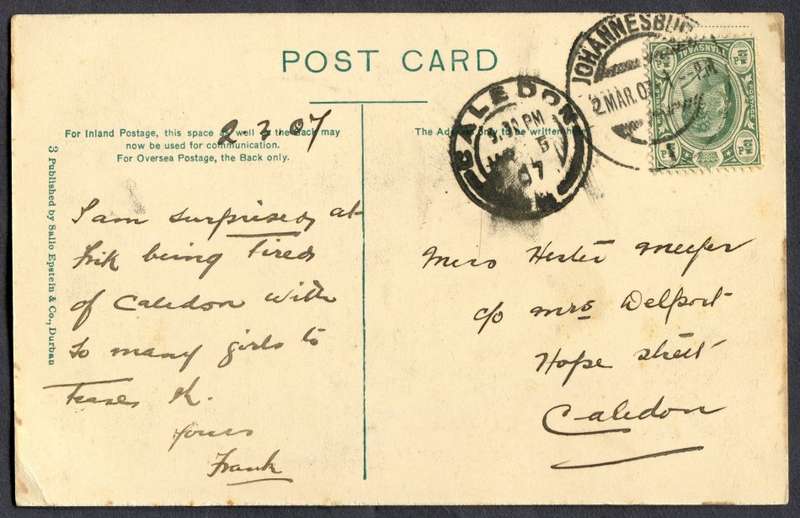 POST CARD
For Inland Postage, this space as well as the Back may
now be used for communication.
For Oversea Postage, the Back only.
2.3.07
The Address only to be written here
3 Published by Sallo Epstein & Co., Durban
I am surprised at
Frik being tired
of Caledon with
so many girls to
Teases
yours
Frank
Miss Hester Meyer
c/o Mrs Delport
Hope Street
Caledon
CALEDON
3.30 PM
5
07
JOHANNESBURG
2 MAR 07
PM
TRANSVAAL